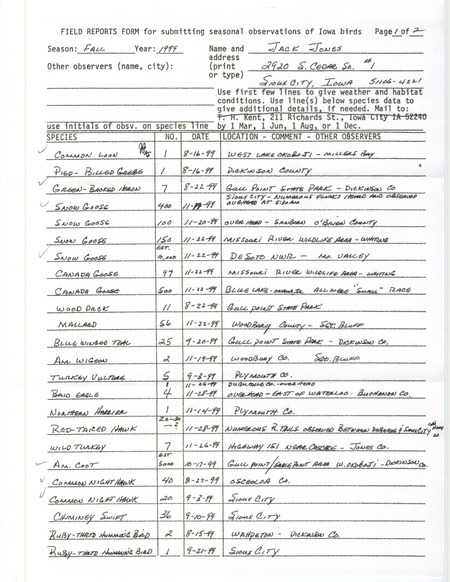 FIELD REPORTS FORM for submitting seasonal observations of Iowa birds Page 1 of 2
Season: FALL Year: 1999 Name and address (print or type) JACK JONES
Other observers (name, city): 2920 S. CEDAR SQ. #1
SIOUX CITY, IOWA 51106-4221
Use first few lines to give weather and habitat
conditions. Use line(s) below species data to
give additional details, if needed. Mail to:
T. H. Kent, 211 Richards St., Iowa City IA 52240
use initials of obsv. on species line by 1 Mar, 1 Jun, 1 Aug, or 1 Dec.
SPECIES NO. DATE LOCATION - COMMENT - OTHER OBSERVERS
COMMON LOON 1 8-16-99 WEST LAKE OKOBOJI - MILLERS BAY
PIED-BILLED GREBE 1 8-16-99 DICKINSON COUNTY
GREEN-BACKED HERON 7 8-22-99 GULL POINT STATE PARK - DICKINSON CO
SNOW GOOSE 400 11-19-99 SIOUX CITY - NUMEROUS FLOCKS HEARD AND OBSERVED
OVERHEAD AT
SNOW GOOSE 100 11-20-99 OVER HEAD - SANBORN O'BRIEN COUNTY
SNOW GOOSE 150 11-22-99 MISSOURI RIVER WILDLIFE AREA - WHITING
SNOW GOOSE EST. 10,000 11-22-99 DESOTO NWR - MO. VALLEY
CANADA GOOSE 97 11-22-99 MISSOURI RIVER WILDLIFE AREA - WHITING
CANADA GOOSE 500 11-22-99 BLUE LAKE - ONAWA IA ALL WERE "SMALL" RACE
WOOD DUCK 11 8-22-99 GULL POINT STATE PARK
MALLARD 56 11-22-99 WOODBURY COUNTY - SGT. BLUFF
BLUE WINGED TEAL 25 9-20-99 GULL POINT STATE PARK - DICKINSON CO.
AM. WIGEON 2 11-19-99 WOODBURY CO. SGT. BLUFF
TURKEY VULTURE 5 9-3-99 PLYMOUTH CO.
1 11-26-99 DUBUQUE CO. OVER HEAD
BALD EAGLE 4 11-28-99 OVERHEAD - EAST OF WATERLOO - BUCHANAN CO.
NORTHERN HARRIER 1 11-14-99 PLYMOUTH CO.
RED-TAILED HAWK 20-30 ? 11-28-99 NUMEROUS R. TAILS OBSERVED BETWEEN DUBUQUE & SIOUX CITY 20
WILD TURKEY 7 11-26-99 HIGHWAY 151 NEAR CASCADE - JONES CO.
AM. COOT EST 5000 10-17-99 GULL POINT/EAGLE POINT AREA W. OKOBOJI - DICKINSON CO.
COMMON NIGHT HAWK 40 8-27-99 OSCEOLA CO.
COMMON NIGHT HAWK 20 9-3-99 SIOUX CITY
CHIMNEY SWIFT 36 9-10-99 SIOUX CITY
RUBY-THRTD HUMMING BIRD 2 8-15-99 WAHPETON - DICKINSON CO.
RUBY-THRTD HUMMING BIRD 1 9-21-99 SIOUX CITY